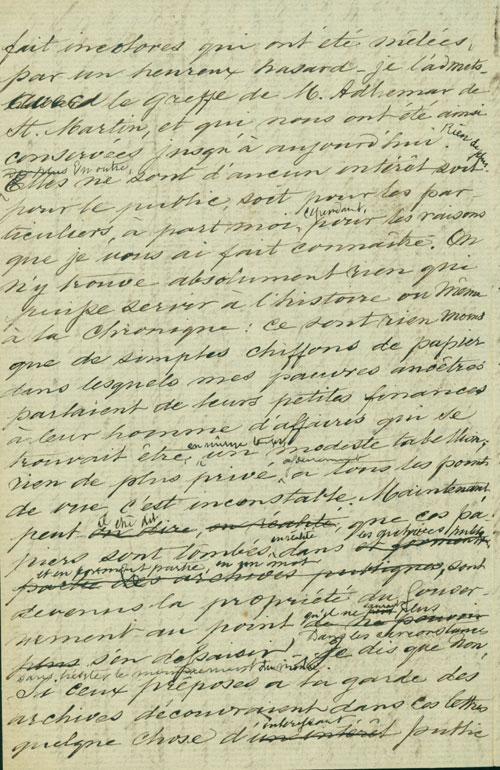 fait incolores qui ont été mêlées,
par un heureux hasard - je l'admets -
avec le greffe de M. Adhemar de
St. Martin, et qui nous ont été ainsi
conservées jusqu'à aujourd'hui. Rien de plus.
En outre,
Elles ne sont d'aucun intérêt soit
pour le public soit pour les par
ticuliers à part moi, cependant, pour les raisons
que je vous ai fait connaître. On
n'y trouve absolument rien qui
puisse servir a l'histoire ou meme
à la chronique : ce sont rien moins
que de simples chiffons de papier
dans lesquels mes pauvres ancêtres
parlaient de leurs petites finances
à leur homme d'affaires qui se
trouvait être, en même temps, un modeste tabellion :
rien de plus privé, à tous les points
de vue, c'est incontestable. Maintenant
peut on dire en réalité, que ces pa
piers sont tombés, en réalité dans les archives publiques et forment
et en forment partie, en un mot
partie des archives publiques, sont
devenus la propriété du Gouver-
nement au point qu'il ne de ne pouvoir plus
Dans les circonstances
plus s'en dessaisir, je dis que non,
sans hésiter le moins du monde.
Si ceux préposés a la garde des
archives découvraient dans ces lettres
quelque chose d'intéressant un intérêt public